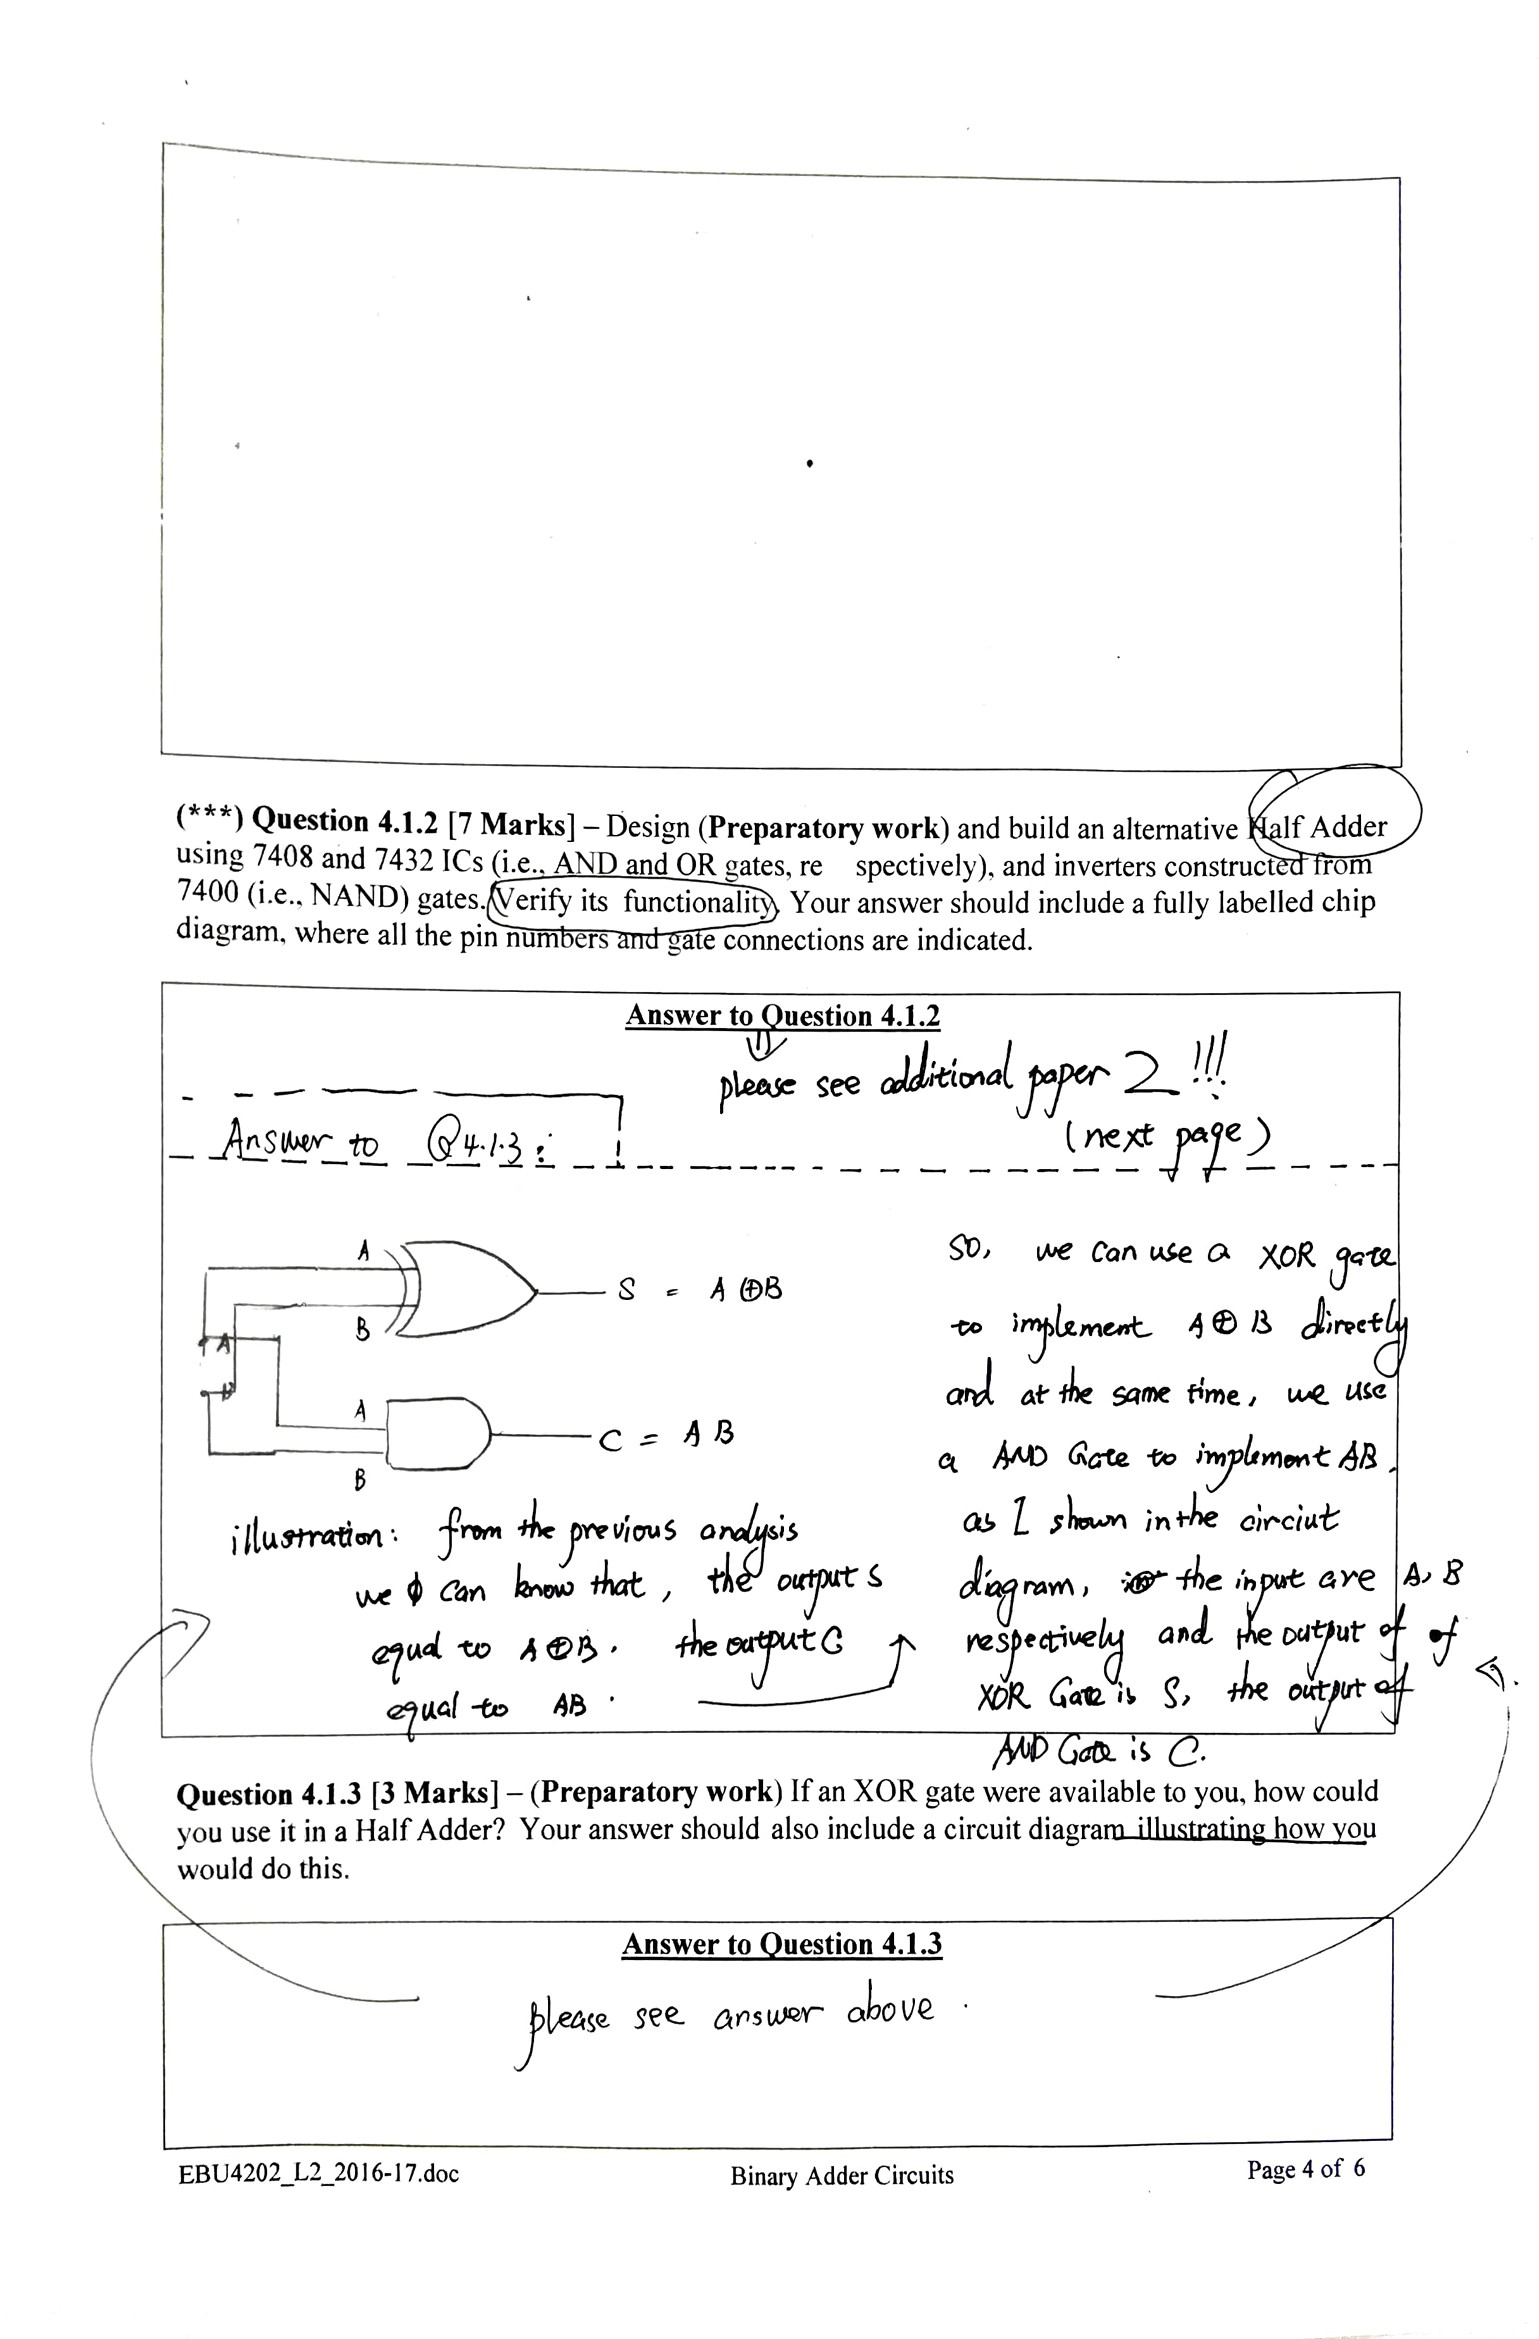 (***) Question 4.1.2 [7 Marks] – Design (Preparatory work) and build an alternative Half Adder
using 7408 and 7432 ICs (i.e., AND and OR gates, re spectively), and inverters constructed from
7400 (i.e., NAND) gates. Verify its functionality. Your answer should include a fully labelled chip
diagram, where all the pin numbers and gate connections are indicated.
Answer to Question 4.1.2
please see additional paper 2 !!!
(next page)
Answer to Q4.1.3:
A
B
S = A ⊕ B
A
B
A
B
C = A B
illustration: from the previous analysis
we can know that, the output S
equal to A⊕B. the output C
equal to AB.
so, we can use a XOR gate
to implement A⊕B directly
and at the same time, we use
a AND Gate to implement AB.
as I shown in the circiut
diagram, the input are A, B
respectively and the output of of
XOR Gate is S, the output of
AND Gate is C.
Question 4.1.3 [3 Marks] – (Preparatory work) If an XOR gate were available to you, how could
you use it in a Half Adder? Your answer should also include a circuit diagram illustrating how you
would do this.
Answer to Question 4.1.3
please see answer above.
EBU4202_L2_2016-17.doc
Binary Adder Circuits
Page 4 of 6